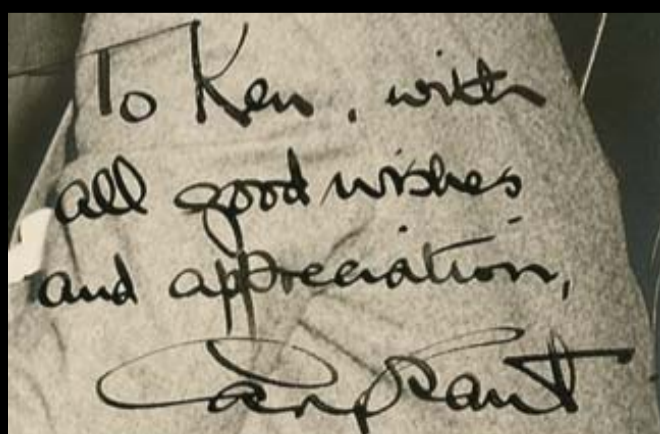 To Ken, with
all good wishes
and appreciation,
Cary Grant